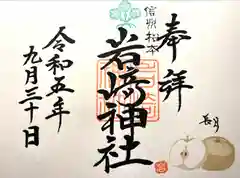 奉拝
信州松本
岩﨑神社
令和五年
九月三十日
長月